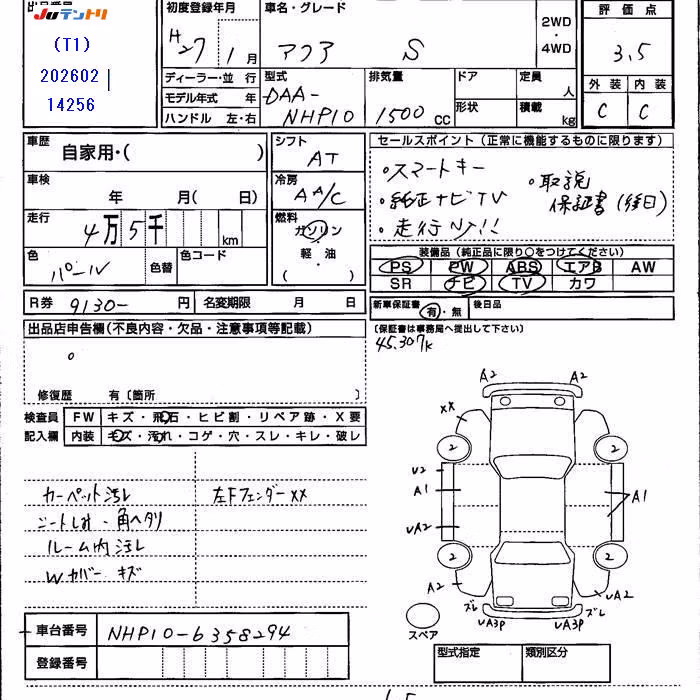 出品番号
JUテントリ
(T1)
202602
14256
初度登録年月
H27 1月
車名・グレード
アクア S
2WD
・
4WD
評価点
3.5
外装 内装
C C
ディーラー・並 行
モデル年式 年
ハンドル 左・右
型式
DAA-
NHP10
排気量
1500 cc
ドア
形状
定員
人
積載
kg
車歴
自家用・( )
車検
年 月( 日)
走行
4万5千 km
色
パール
色替
色コード
シフト
AT
冷房
AA/C
燃料
ガソリン
・
軽・油
( )
セールスポイント(正常に機能するものに限ります)
・スマートキー
・純正ナビTV
・走行
・取説
保証書(後日)
装備品(純正品に限り○をつけてください)
PS PW ABS エアB AW
SR ナビ TV カワ
R券 9130- 円 名変期限 月 日
新車保証書 有・無 後日品
(保証書は事務局へ提出して下さい)
45.307k
出品店申告欄(不良内容・欠品・注意事項等記載)
修復歴 有〔箇所 〕
検査員
記入欄
FW キズ・飛石・ヒビ割・リペア跡・X要
内装 キズ・汚れ・コゲ・穴・スレ・キレ・破レ
カーペット汚レ
シートしみ・角ヘタリ
ルーム内汚レ
Wカバー キズ
左Fフェンダーxx
A2 A2
XX
2 2
U2
A1 A1
UA2
2 2
A2 UA2
ズレ ズレ
UA3P UA3P
スペア
車台番号 NHP10-6358294
登録番号
型式指定 類別区分